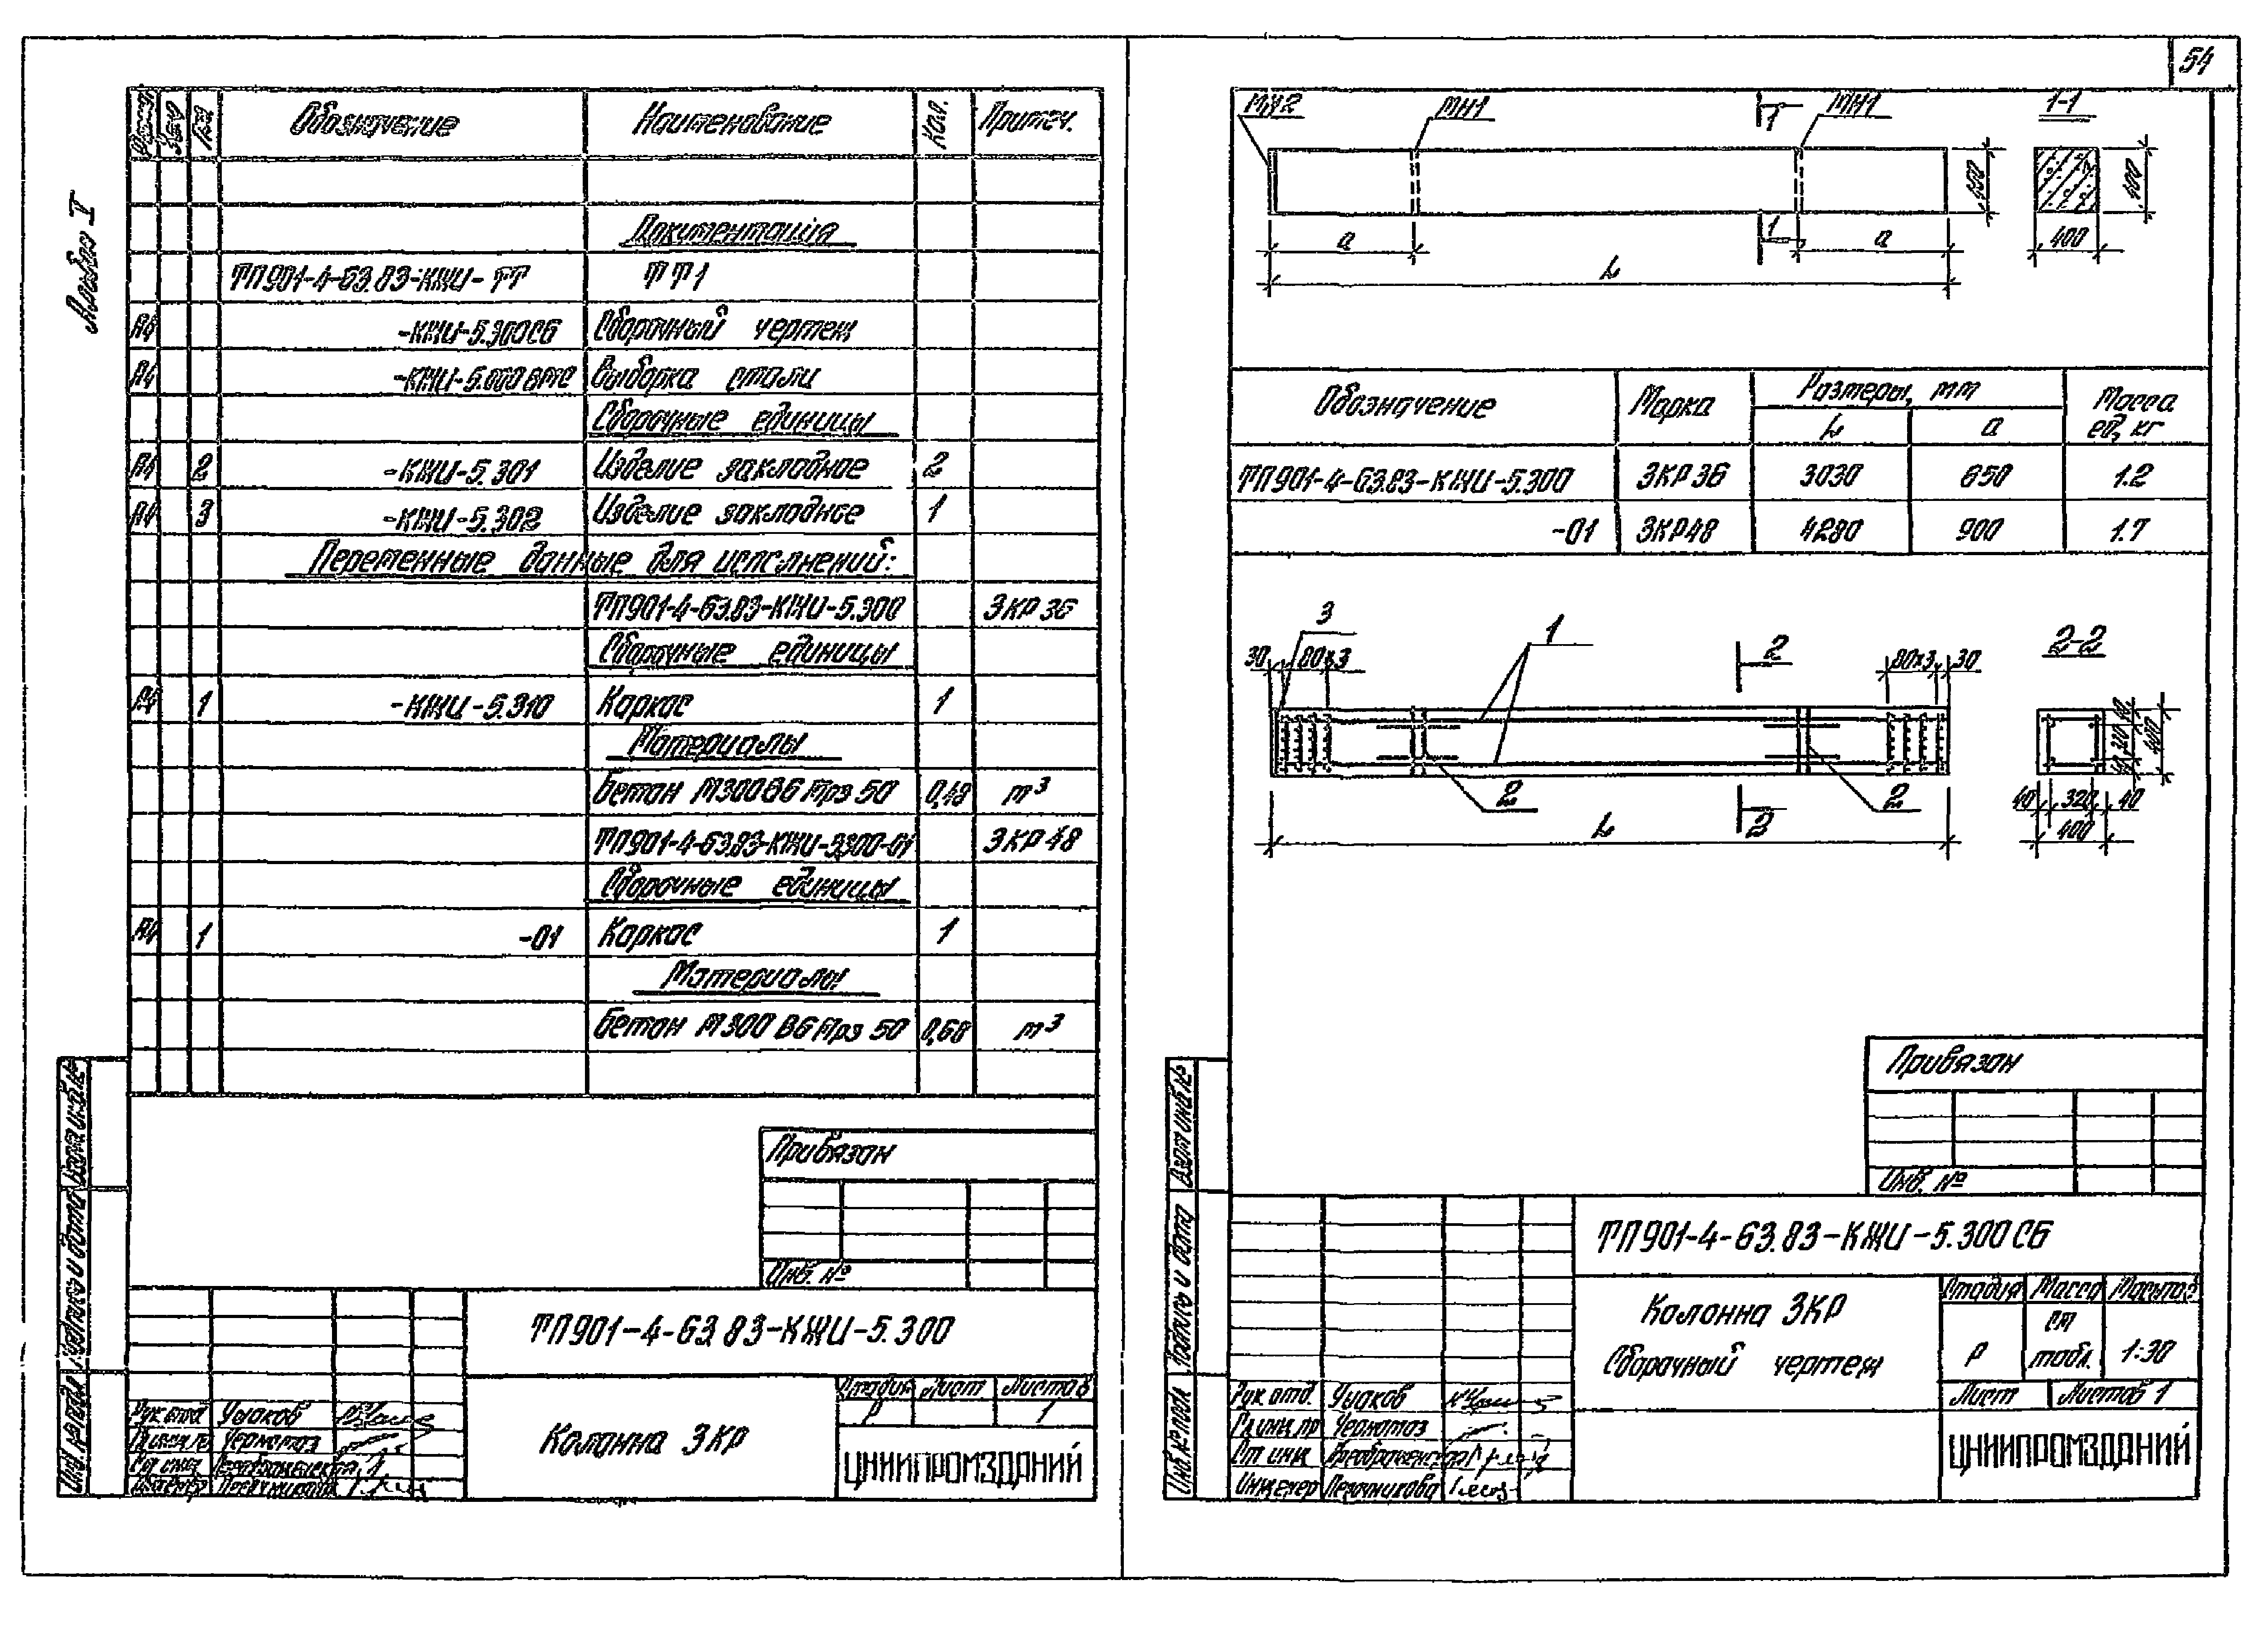 Альбом V
Формат Зона Поз. Обозначение Наименование Кол. Примеч.
Документация
ТП901-4-63.83-КЖИ-ТТ ТТ1
А4 -КЖИ-5.300СБ Сборочный чертеж
А4 -КЖИ-5.000ВМС Выборка стали
Сборочные единицы
А4 2 -КЖИ-5.301 Изделие закладное 2
А4 3 -КЖИ-5.302 Изделие закладное 1
Переменные данные для исполнений:
ТП901-4-63.83-КЖИ-5.300 3КР36
Сборочные единицы
А4 1 -КЖИ-5.310 Каркас 1
Материалы
Бетон М300 В6 Мрз 50 0,48 м³
ТП901-4-63.83-КЖИ-5.300-01 3КР48
Сборочные единицы
А4 1 -01 Каркас 1
Материалы
Бетон М300 В6 Мрз 50 0,68 м³
Привязан
Инв. №
ТП901-4-63.83-КЖИ-5.300
Колонна 3КР
Стадия Лист Листов
Р 1
ЦНИИПРОМЗДАНИЙ
Рук отд Ушаков
Гл инж пр Черномаз
Ст инж Преображенская
Инженер Песочникова
Взам инв. №
Подпись и дата
Инв. № подл
54
МН2 МН1 1 МН1 1-1
400 400
а 1 а 400
L
Обозначение Марка Размеры, мм Масса ед, кг
L а
ТП901-4-63.83-КЖИ-5.300 3КР36 3030 650 1.2
-01 3КР48 4280 900 1.7
3 1 2 2-2
30 80×3 80×3 30
40 320 40 400
2 2
40 320 40
L 2 400
Привязан
Инв. №
ТП901-4-63.83-КЖИ-5.300СБ
Колонна 3КР
Сборочный чертеж
Стадия Масса Масштаб
Р см табл. 1:30
Лист Листов 1
ЦНИИПРОМЗДАНИЙ
Рук отд. Ушаков
Гл инж пр Черномаз
Ст инж Преображенская
Инженер Песочникова
Взам инв №
Подпись и дата
Инв. № подл